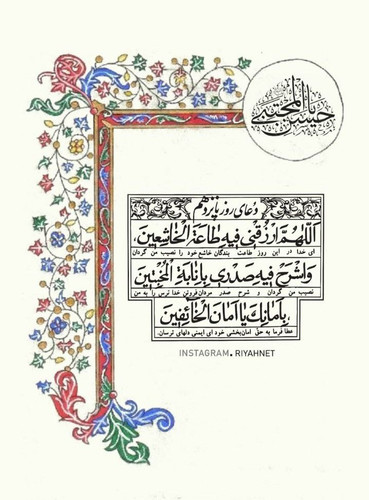 یا حسن المجتبی
دعای روز پانزدهم
اَللّهُمَّ ارْزُقْنی فیهِ طاعَةَ الْخاشِعینَ،
ای خدا در این روز طاعت بندگان خاشع خود را نصیب من گردان
وَاشْرَحْ فیهِ صَدْری بِاِنابَةِ الْمُخْبِتینَ
نصیب من گردان و شرح صدر مردان فروتن خدا ترس را به من
بِاَمانِکَ یا اَمانَ الْخائِفینَ،
عطا فرما به حق امان‌بخشی خود ای ایمنی دلهای ترسان.
INSTAGRAM. RIYAHNET